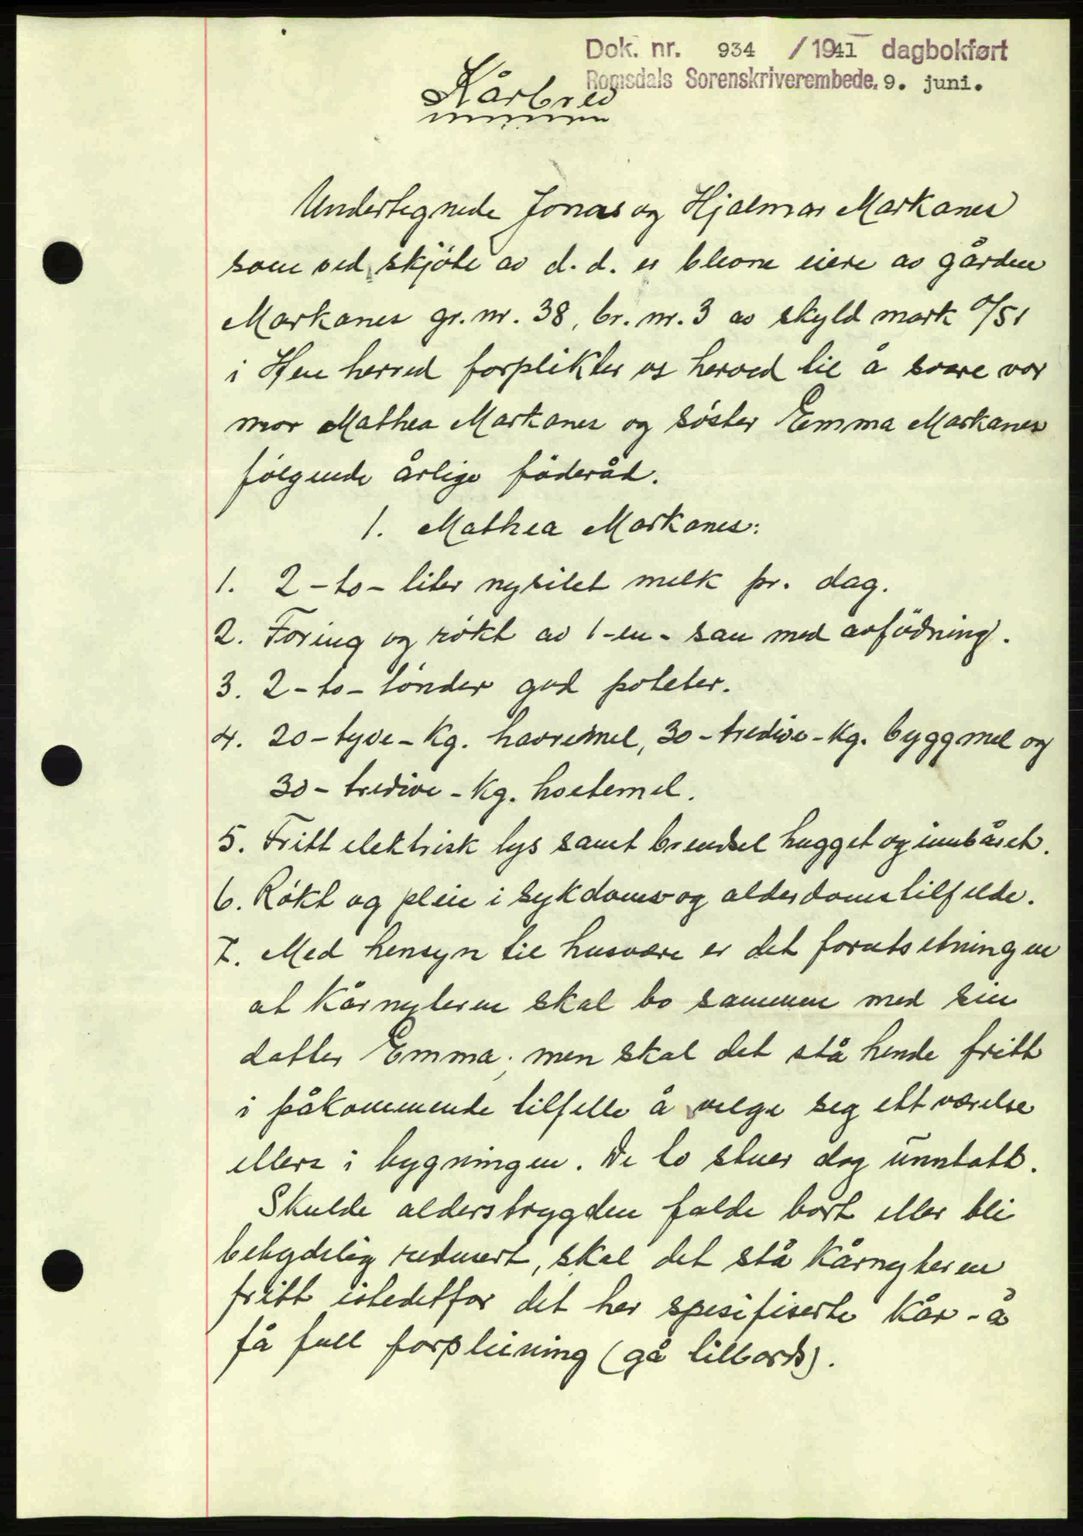 Dok. nr. 934 / 1941 dagbokført
Romsdals Sorenskriverembede. 9. juni.
Kårbrev
Undertegnede Jonas og Hjalmar Markanes
som ved skjöte av d. d. er blevne eiere av gården
Markanes gr. nr. 38, br. nr. 3 av skyld mark 0/51
i Hen herred forplikter os herved til å svare vor
mor Mathea Markanes og söster Emma Markanes
følgende årlige föderåd.
1. Mathea Markanes:
1. 2 - to - liter nysilet melk pr. dag.
2. Foring og røkt av 1 - en - sau med avfödning.
3. 2 - to - tönder god poteter.
4. 20 - tyve - kg. havremel, 30 - tredive - kg. byggmel og
30 - tredive - kg. hvetemel.
5. Fritt elektrisk lys samt brendsel hugget og innbåret.
6. Røkt og pleie i sykdoms og alderdomstilfelde.
7. Med hensyn til husvære er det forutsetningen
at kårnyteren skal bo sammen med sin
datter Emma; men skal det stå hende fritt
i påkommende tilfelle å velge seg ett værelse
ellers i bygningen. De to stuer dog unntatt.
Skulde alderstrygden falde bort eller bli
betydelig redusert, skal det stå kårnyteren
fritt istedetfor det her spesifiserte kår - å
få full forpleining (gå tilbords).